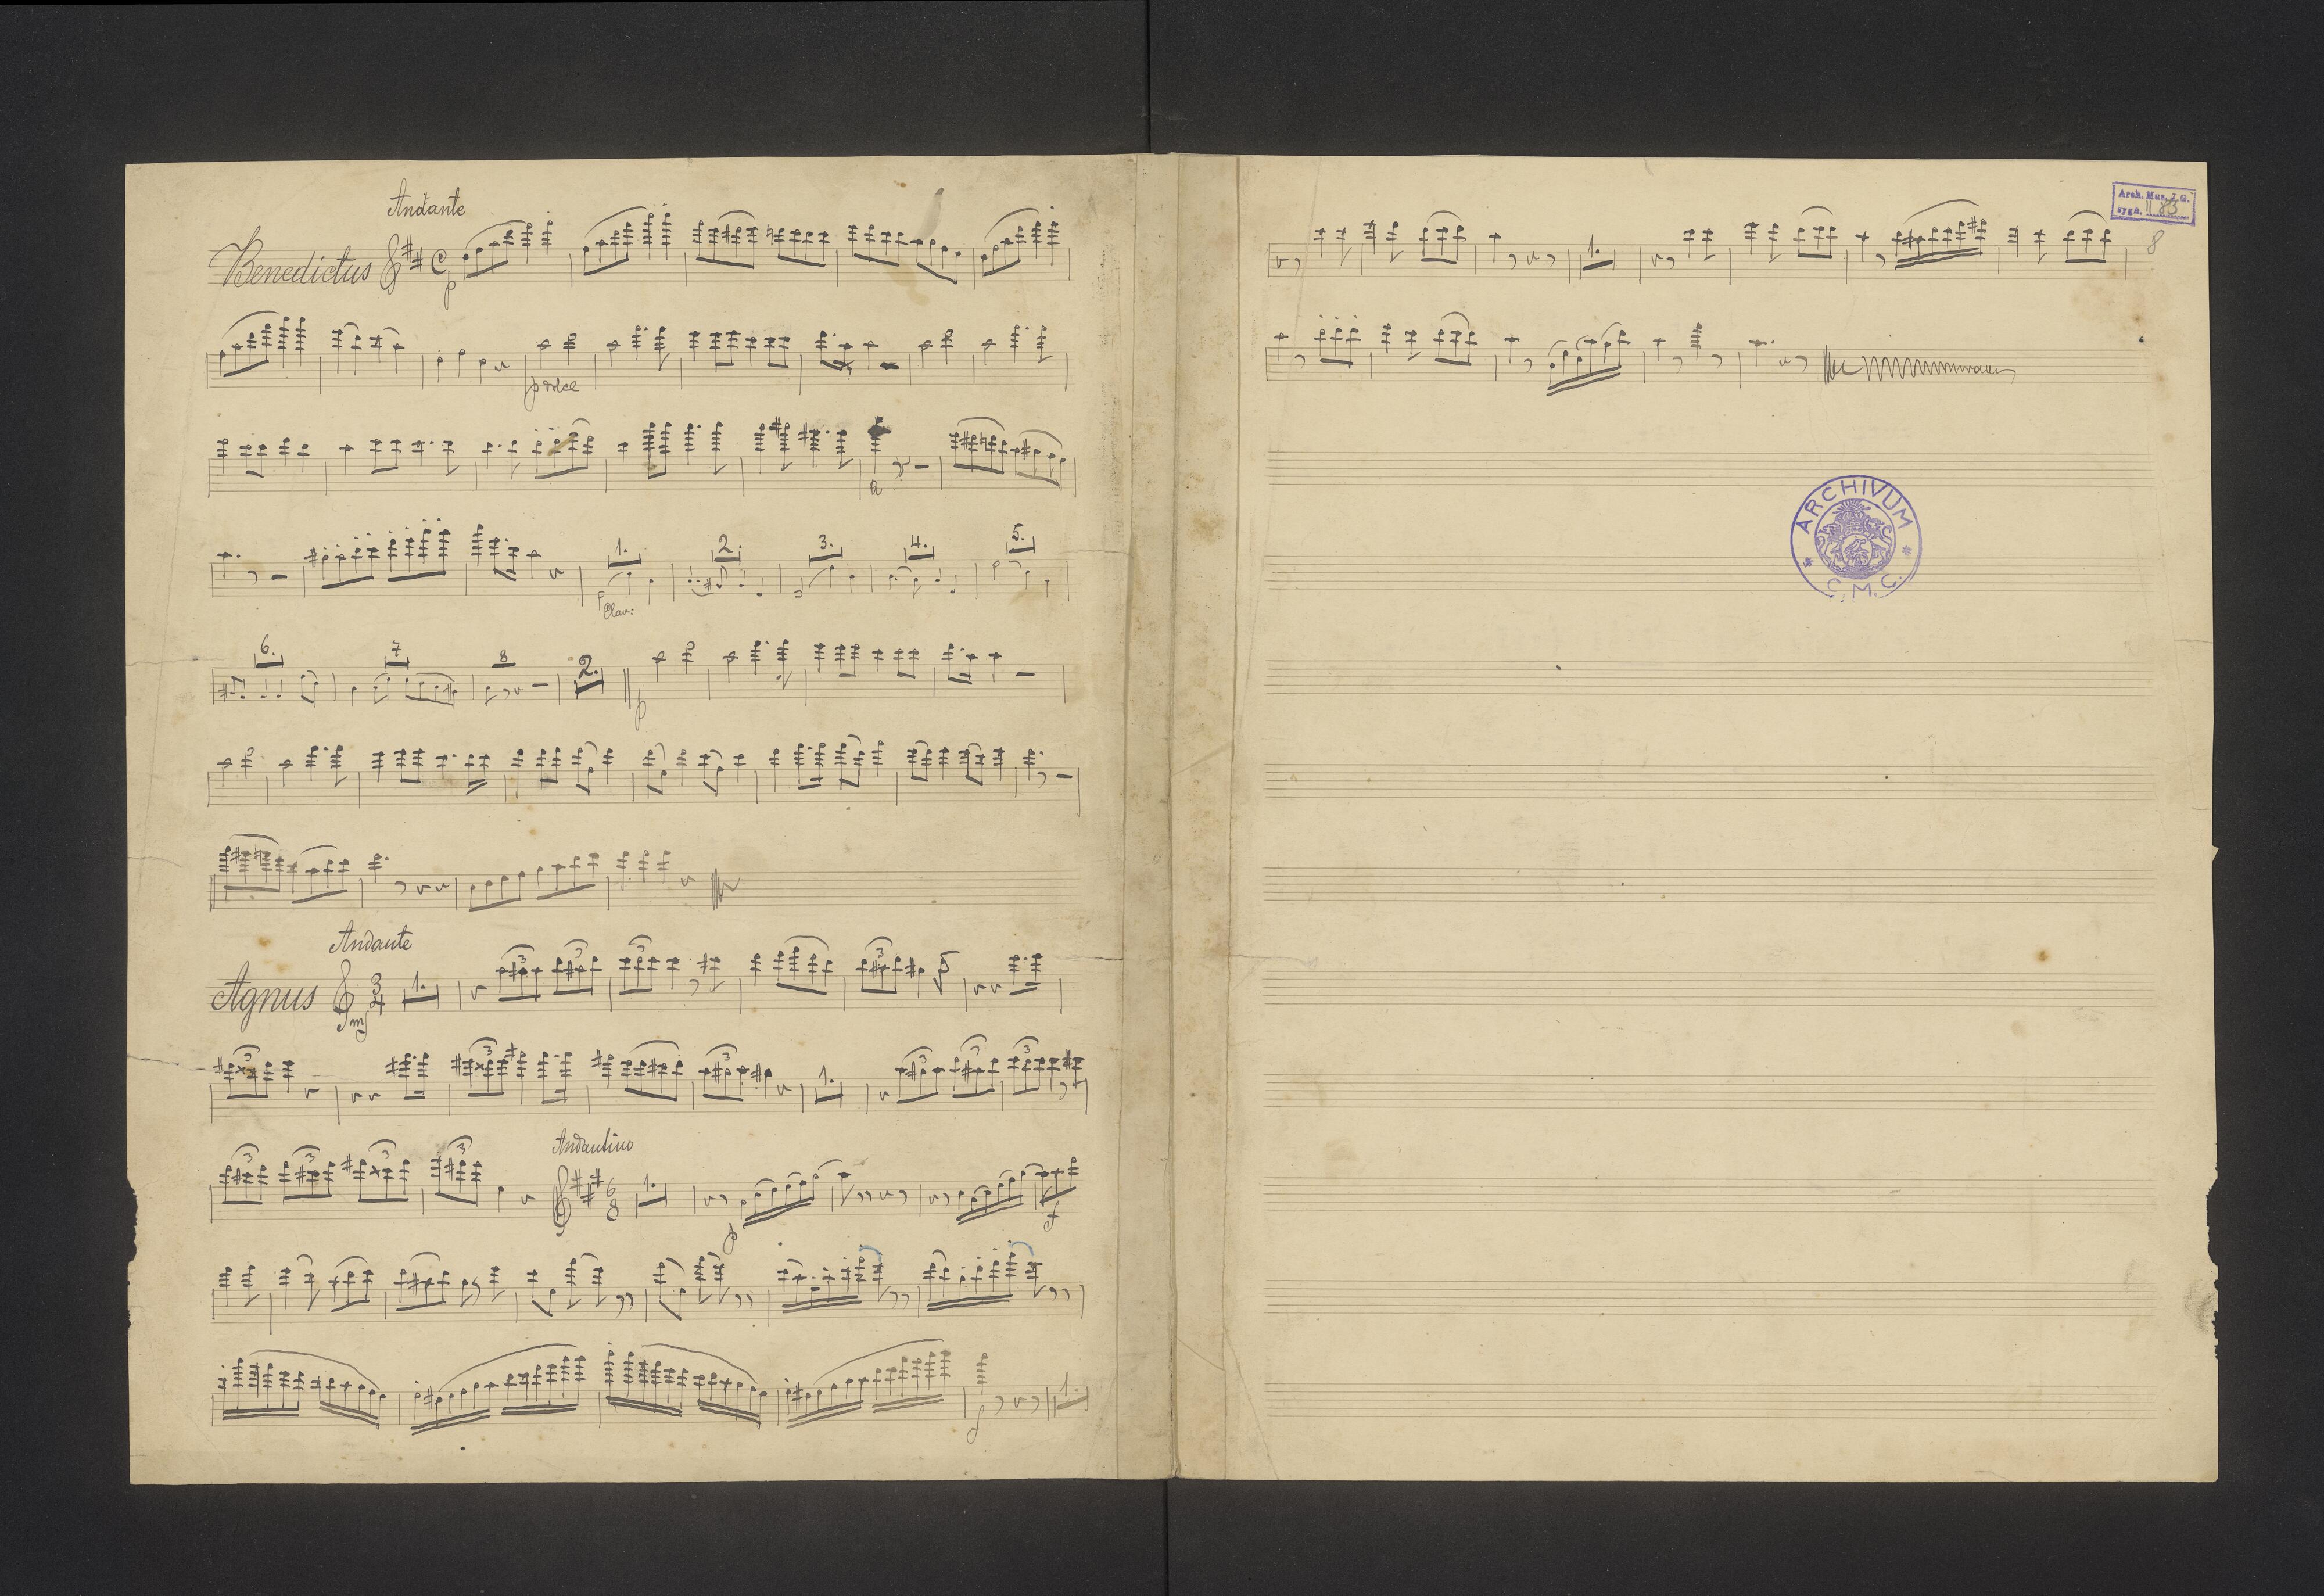 Andante
Benedictus C
p
p dolce
1. 2. 3. 4. 5.
Clar:
6. 7 8 2.
p
Andante
Agnus 3 4 1. 3 3 3 3
mf
3 3 1. 3 3 3
Andantino
3 3 3 3 6 8 1.
p f
1.
Arch. Mus. J. G.
sygn. II 83
8
1.
ARCHIVUM
* C. M. C. *